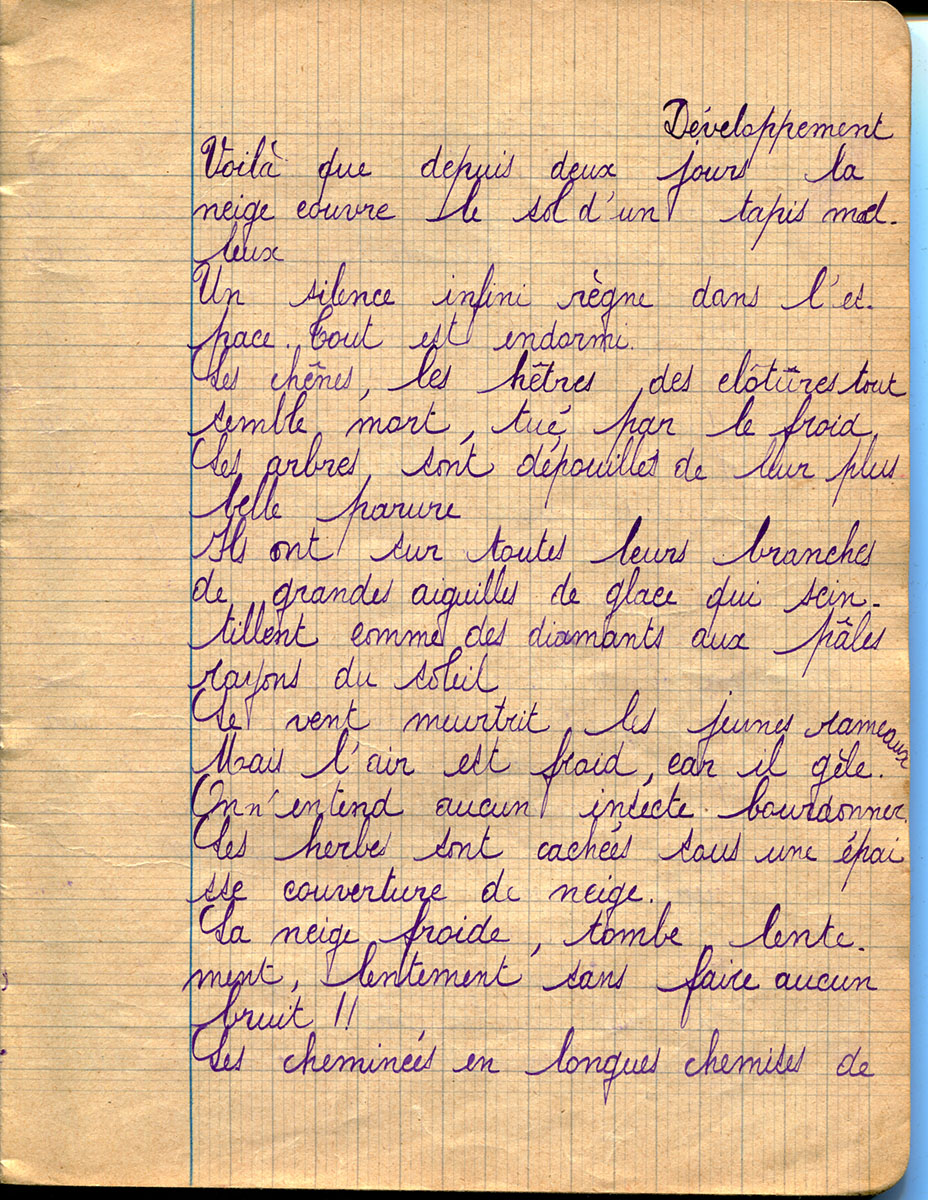 Développement
Voilà que depuis deux jours la
neige couvre le sol d'un tapis moel-
leux
Un silence infini règne dans l'es-
pace. Tout est endormi.
Les chênes, les hêtres, des clôtures tout
semble mort, tué par le froid,
Les arbres, sont dépouillés de leur plus
belle parure
Ils ont sur toutes leurs branches
de grandes aiguilles de glace qui scin-
tillent comme des diamants aux pâles
rayons du soleil
Le vent meurtrit les jeunes rameaux
Mais l'air est froid, car il gèle.
On n'entend aucun insecte bourdonner.
Les herbes sont cachées sous une épai
sse couverture de neige.
La neige froide, tombe lente-
ment, lentement sans faire aucun
bruit !!
Les cheminées en longues chemises de